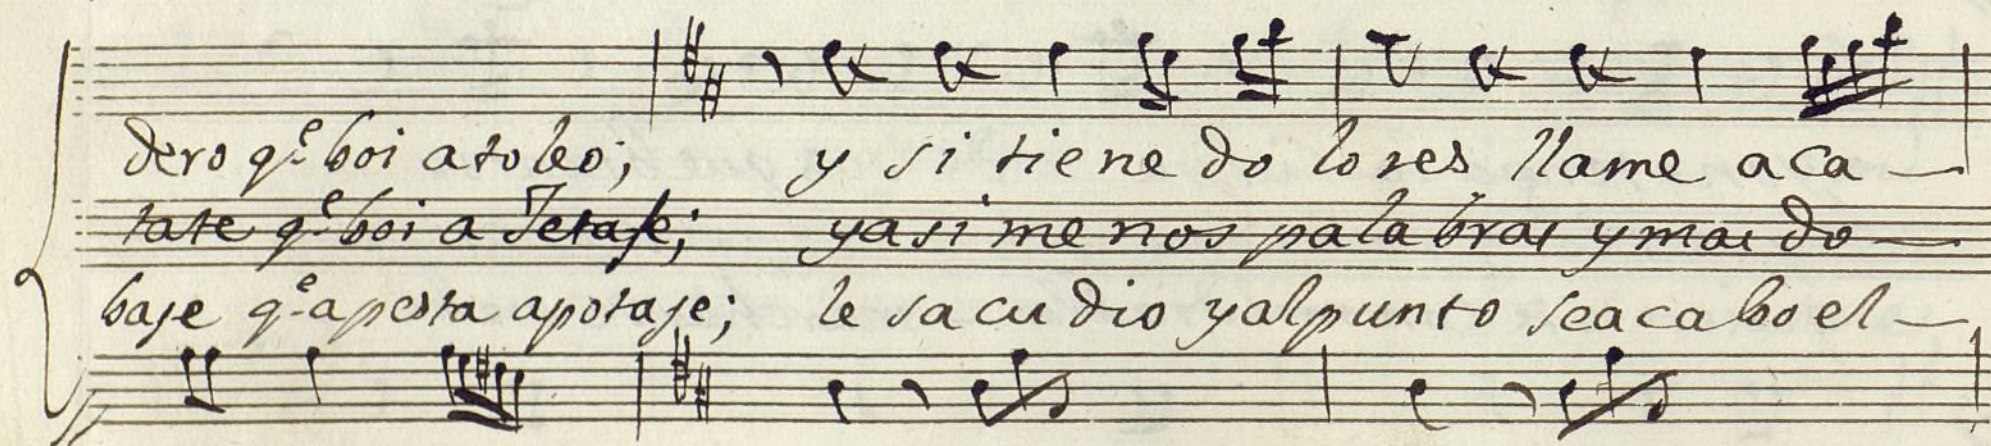 dero q.e boi a toleo; y si tiene do lo res llame a ca —
tate q.e boi a Jetafe; y asi me nos pala bras y mas do —
baje q.e apesta apotaje; le sa cu dio y al punto se a ca bo el —